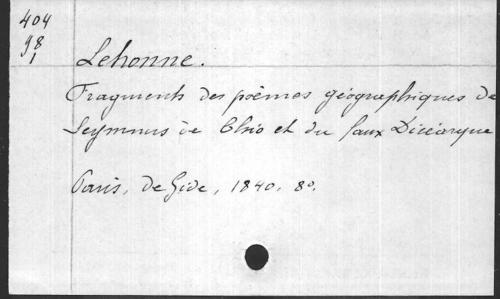 404
98,
Lehonne.
Fragments des poèmes géographiques de
Scymnus de Chio et du faux Dicéarque
Paris, de Gide, 1840. 8º.